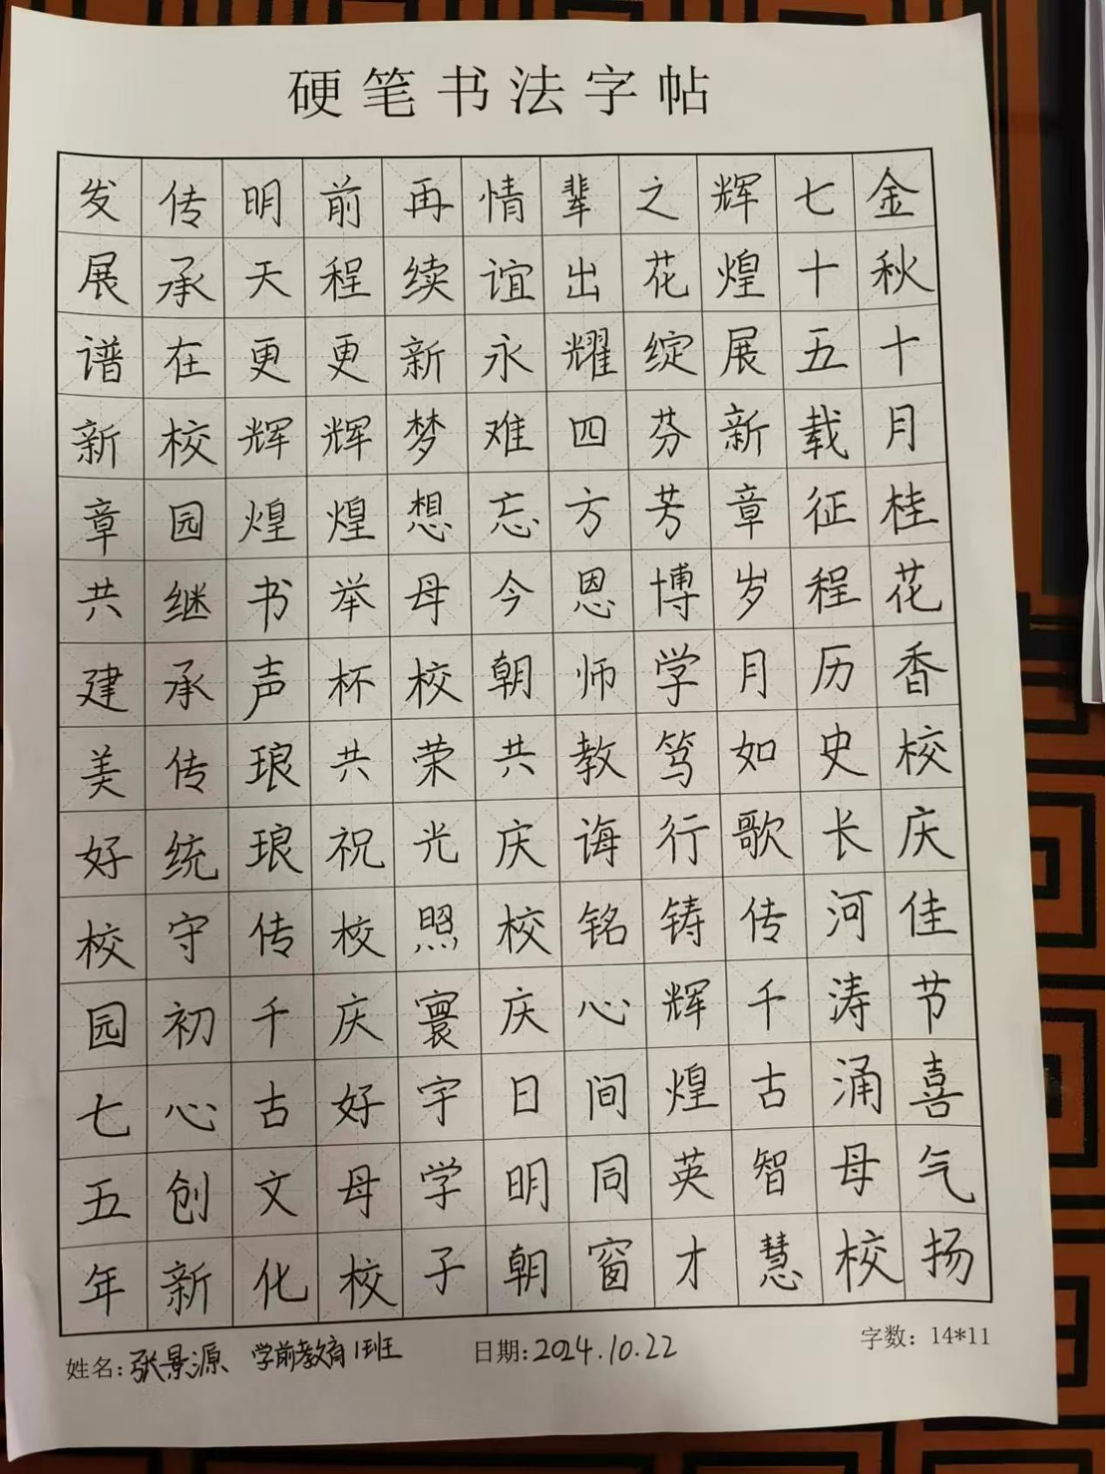 硬笔书法字帖
金秋十月桂花香校庆佳节喜气扬
七十五载征程历史长河涛涌母校
辉煌展新章岁月如歌传千古智慧
之花绽芬芳博学笃行铸辉煌英才
辈出耀四方恩师教诲铭心间同窗
情谊永难忘今朝共庆校庆日明朝
再续新梦想母校荣光照寰宇学子
前程更辉煌举杯共祝校庆好母校
明天更辉煌书声琅琅传千古文化
传承在校园继承传统守初心创新
发展谱新章共建美好校园七五年
姓名:张景源 学前教育1班 日期:2024.10.22 字数:14*11